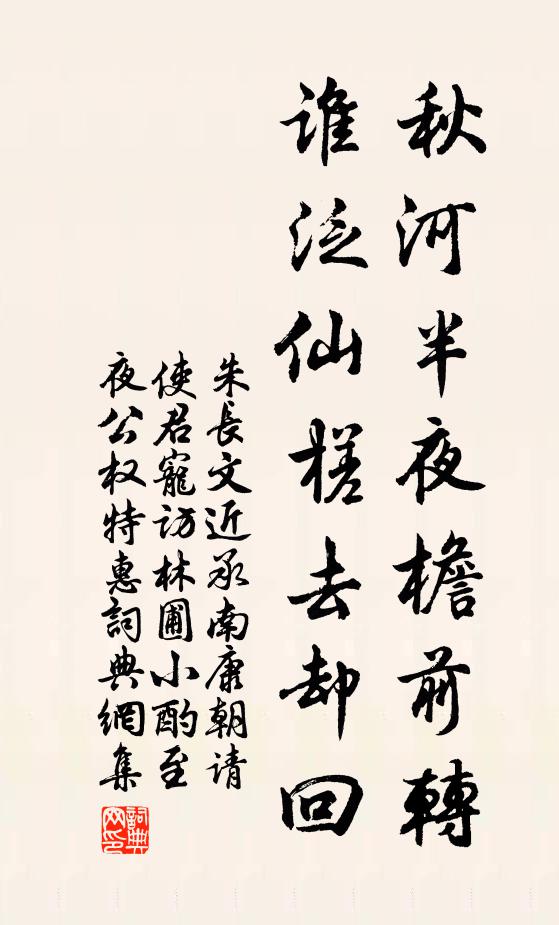 秋河半夜檐前轉
谁泛仙槎去却回
朱長文近承南康朝请
使君寵访林圃小酌至
夜公权特惠詞典網集
詞典網印